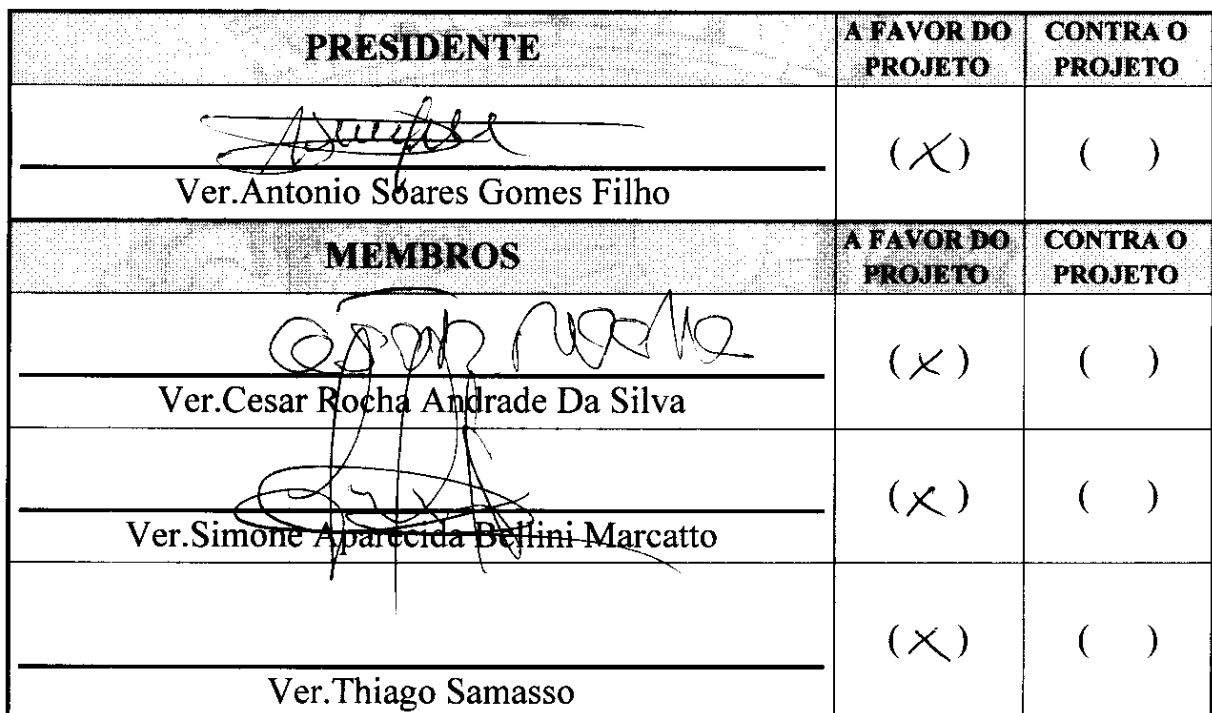 PRESIDENTE
A FAVOR DO PROJETO
CONTRA O PROJETO
(X)
( )
Ver.Antonio Soares Gomes Filho
MEMBROS
A FAVOR DO PROJETO
CONTRA O PROJETO
(X)
( )
Ver.Cesar Rocha Andrade Da Silva
(X)
( )
Ver.Simone Aparecida Bellini Marcatto
(X)
( )
Ver.Thiago Samasso